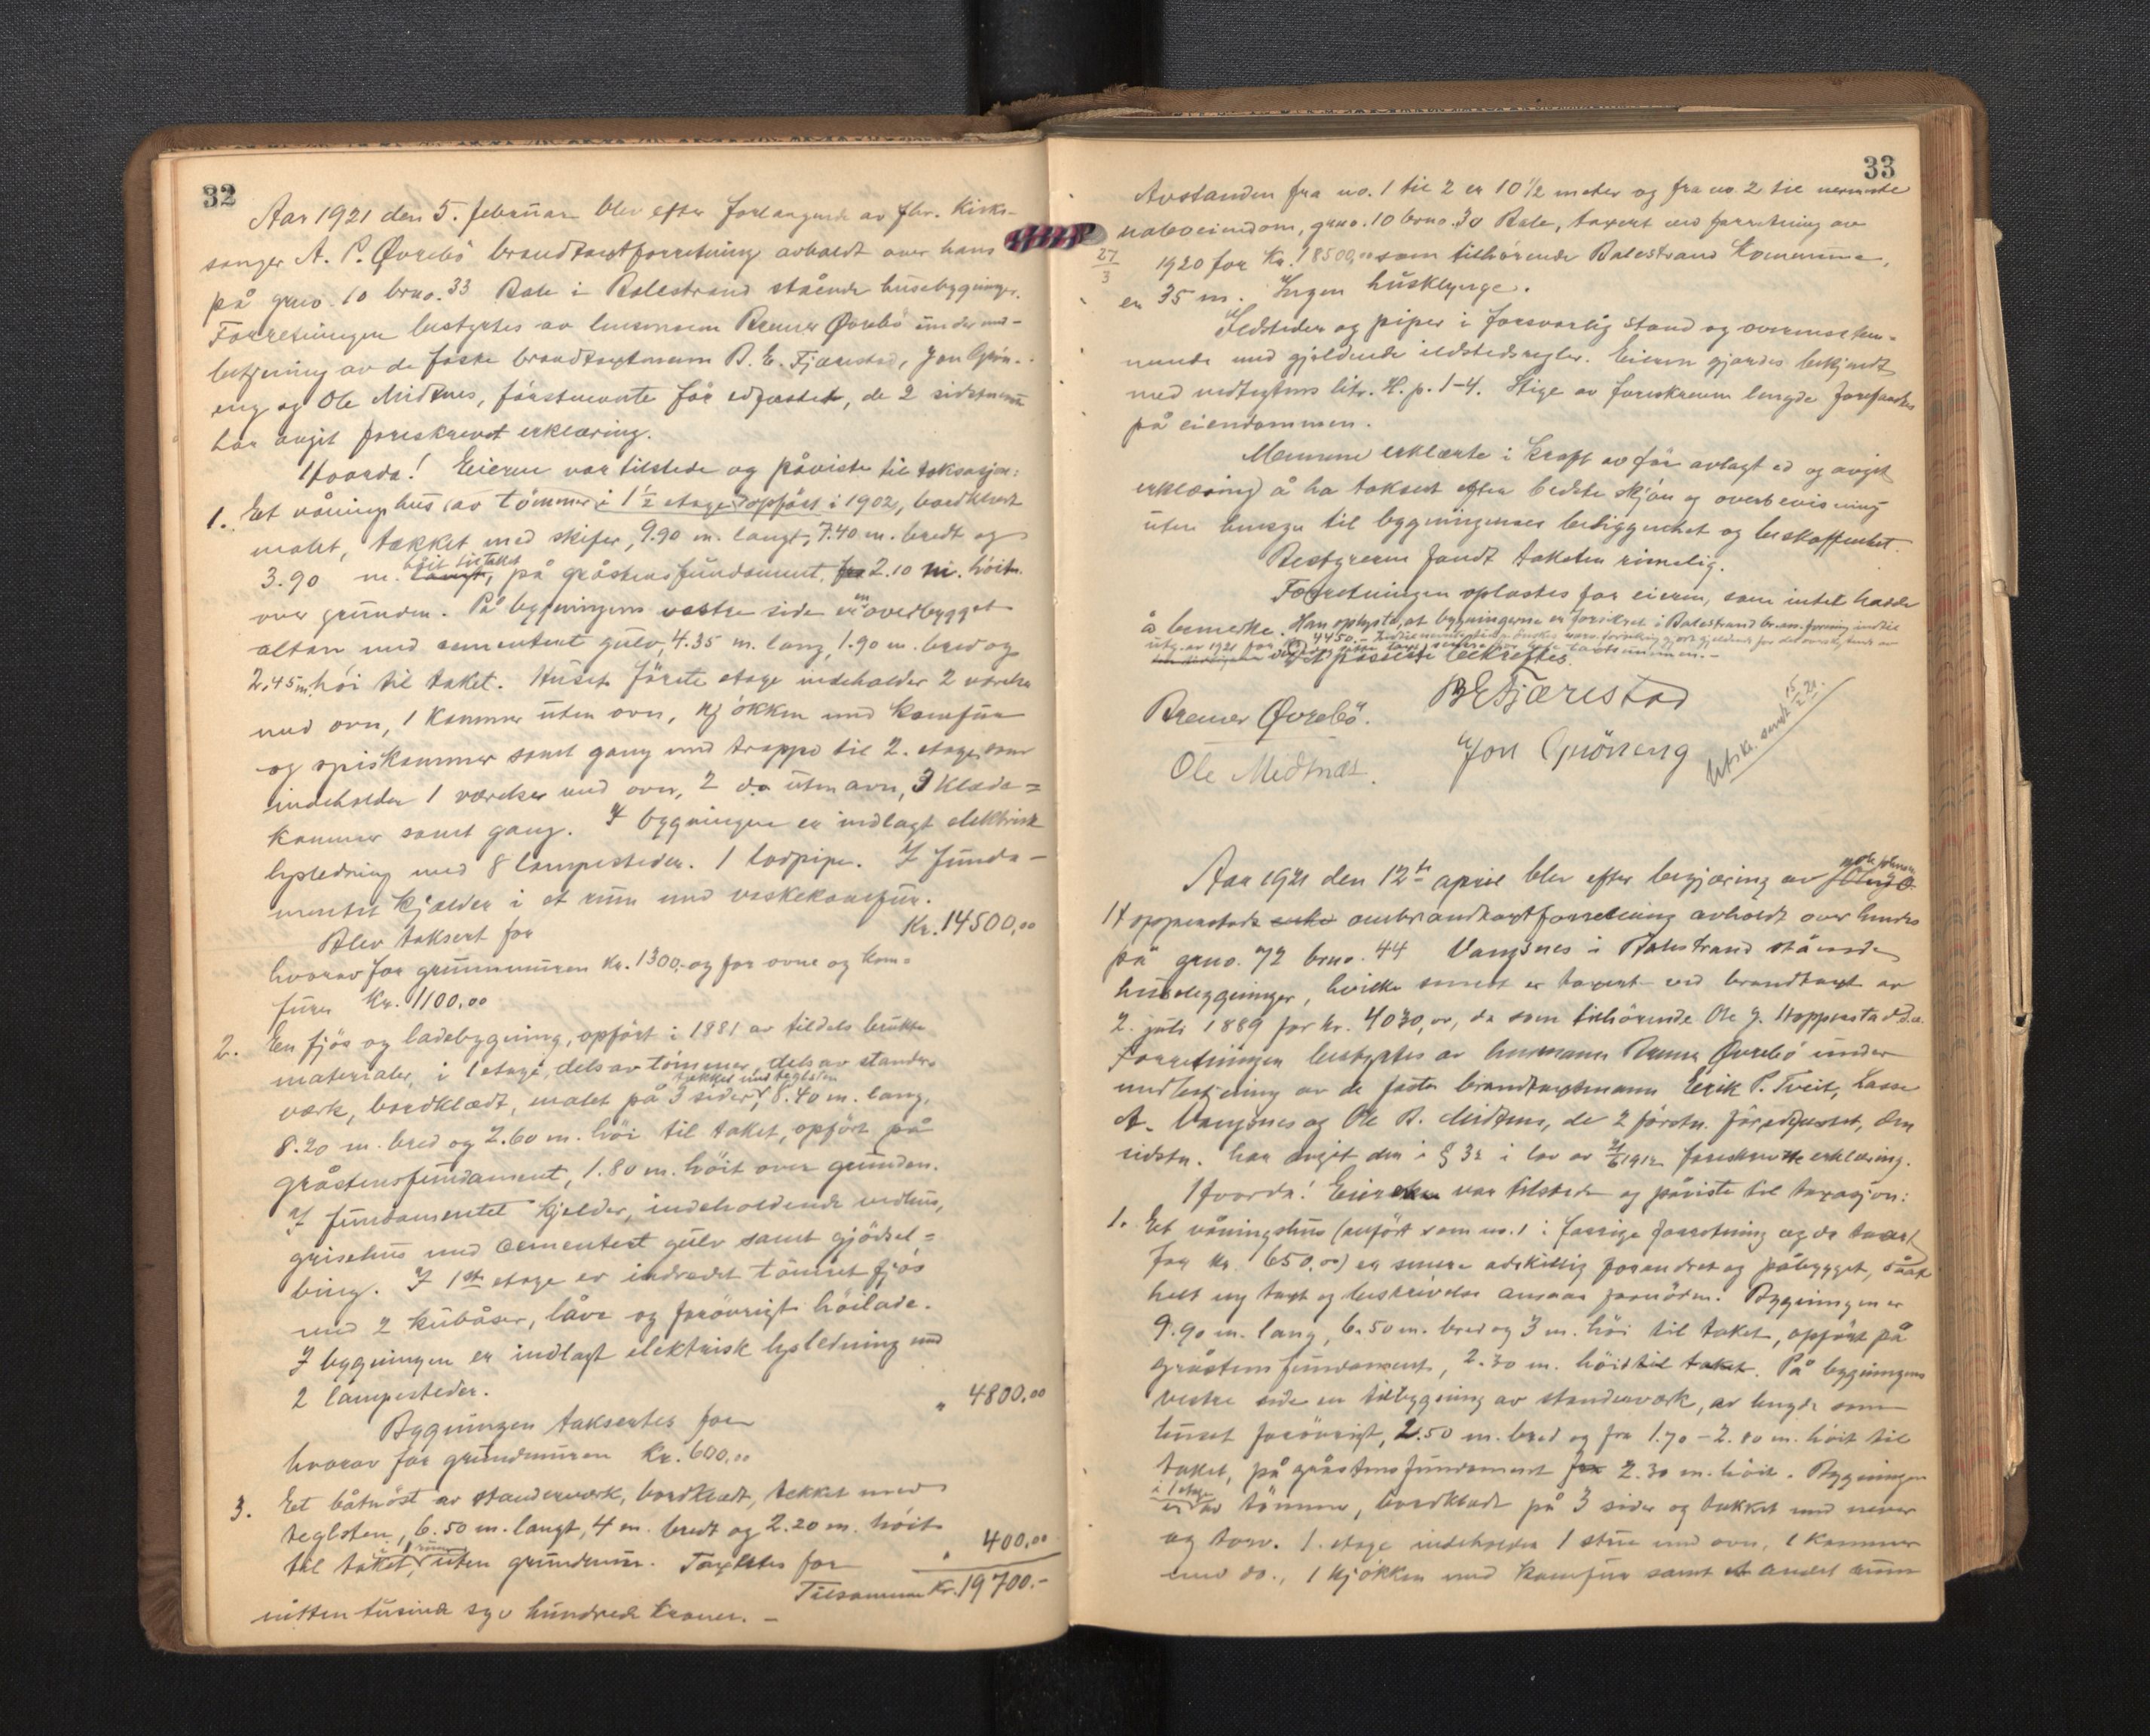 32
Aar 1921 den 5. februar blev efter forlangende av fhv. kirke-
sanger A. P. Øvrebö brandtaxtforretning avholdt over hans
på gno. 10 brno. 33 Bale i Balestrand stående husebygninger.
Forretningen bestyrtes av lensmann Bremer Øvrebö under med-
betjening av de faste brandtaxtmenn B. E. Fjærestad, Jon Grön-
eng og Ole Midtnes, förstnevnte för edfæstet, de 2 sidstnevnte
har avgit foreskrevet erklæring.
Hvorda! Eieren var tilstede og påviste til taksasjon:
1. Et våningshus (av tömmer i 1 1/2 etage) opfört i 1902, bordklædt
malet, tækket med skifer, 9.90 m. langt, 7.40 m. bredt og
3.90 m. langt, höit til taket på gråstensfundament, fra 2.10 m. höit
over grunden. På bygningens vestre side er en overbygget
altan med cementert gulv, 4.35 m. lang, 1.90 m. bred og
2,45 m. höi til taket. Husets förste etage indeholder 2 værelser
med ovn, 1 kammer uten ovn, kjökken med komfur
og spiskammer samt gang med trappe til 2. etage, som
indeholder 1 værelser med ovn, 2 do uten ovn, 3 klæde=
kammer samt gang. I bygningen er indlagt elektrisk
lysledning med 8 lampesteder. 1 lodpipe. I funda-
mentet kjælder i et rum med vaskekomfur.
Blev taksert for Kr. 14500,00
hvorav for grunnmuren kr. 1300,- og for ovne og kom=
furer Kr. 1100.00
2. En fjös og ladebygning, opfört i 1881 av tildels brukte
materialer, i 1 etage, dels av tömmer, dels av stander-
værk, bordklædt, malet på 3 sider, tækket med teglsten 8.40 m. lang,
8.20 m. bred og 2.60 m. höi til taket, opfört på
gråstensfundament, 1.80 m. höit over grunden.
I fundamentet kjelder, indeholdende vedhus,
grisehus med cementert gulv samt gjödsel=
bing. I 1ste etage er indredet tömret fjös
med 2 kubåser, låve og forövrigt höilade.
I bygningen er indlagt elektrisk lysledning med
2 lampesteder.
Bygningen taksertes for " 4800.00
hvorav for grundmuren Kr. 600,00
3. Et båtnöst av standerværk, bordklædt, tekket med
teglsten, 6.50 m. langt, 4 m. bredt og 2.20 m. höit
til taket, i 1 rum uten grundmur. Taxertes for " 400,00
Tilsammen Kr. 19700.-
nitten tusinde syv hundrede kroner. -
33
Avstanden fra no. 1 til 2 er 10 1/2 meter og fra no. 2 til nermeste
naboeiendom, gno. 10 brno. 30 Bale, taxert ved forretning av
27/3 1920 for Kr. 18500,00 som tilhörende Balestrand Kommune,
er 35 m. Ingen husklynge.
Ildsteder og piper i forsvarlig stand og overensstem-
mende med gjeldende ildstedsregler. Eieren gjordes bekjendt
med vedtegtens litr. H. p. 1-4. Stige av foreskreven lengde forefandtes
på eiendommen.
Mennene erklærte i kraft av för avlagt ed og avgit
erklæring å ha taksert efter bedste skjön og overbevisning
uten hensyn til bygningenes beliggenhet og beskaffenhet.
Bestyreren fandt taksten rimelig.
Forretningen oplæstes for eieren, som intet hadde
å bemerke. Han oplyste, at bygningerne er forsikret i Balestrand br.ass.forening indtil
utg. av 1921 for 4450.-
Det passerte bekreftes.
Bremer Øvrebö. B E Fjærestad
Ole Midtnæs. Jon Gröneng
Utskr. sendt 15/2 21.
Aar 1921 den 12te april blev efter begjæring av
Hoppenstads enke ombrandtaxtforretning avholdt over hendes
på gno. 72 brno. 44 Vangsnes i Balestrand stående
husebygninger, hvilke senest er taxert ved brandtaxt av
2. juli 1889 for kr. 4030,00, da som tilhörende Ole J. Hoppenstad s.a.
Forretningen bestyrtes av lensmann Bremer Øvrebö under
medbetjening av de faste brandtaxtmenn Eirik P. Tveit, Lasse
A. Vangsnes og Ole B. Midtnes, de 2 förstn. för edfæstet, den
sidstn. har avgit den i § 32 i lov av 1912 foreskrevne erklæring.
Hvorda! Eiersken var tilstede og påviste til taxasjon:
1. Et våningshus (anfört som no. 1 i forrige forretning og da taxert
for kr. 650.00) er senere adskillig forandret og påbygget, saa at
helt ny taxt og beskrivelse ansaaes fornöden. Bygningen er
9.90 m. lang, 6.50 m. bred og 3 m. höi til taket, opfört på
gråstensfundament, 2.30 m. höit til taket. På bygningens
vestre side en tilbygning av standerværk, av lengde som
huset forövrigt, 2.50 m. bred og fra 1.70 - 2.80 m. höit til
taket, på gråstensfundament fra 2.30 m. höit. Bygningen
er i 1 etage av tömmer, bordklædt på 3 sider og tækket med never
og torv. 1. etage indeholder 1 stue med ovn, 1 kammer
med do., 1 kjökken med komfur samt et andet rum